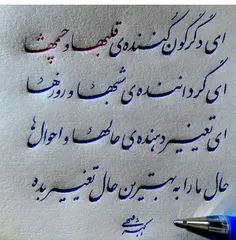 ای دگرگون کننده‌ی قلبها و چشمها
ای گرداننده‌ی شبها و روزها
ای تغییر دهنده‌ی حالها و احوالها
حال ما را به بهترین حال تغییر بده